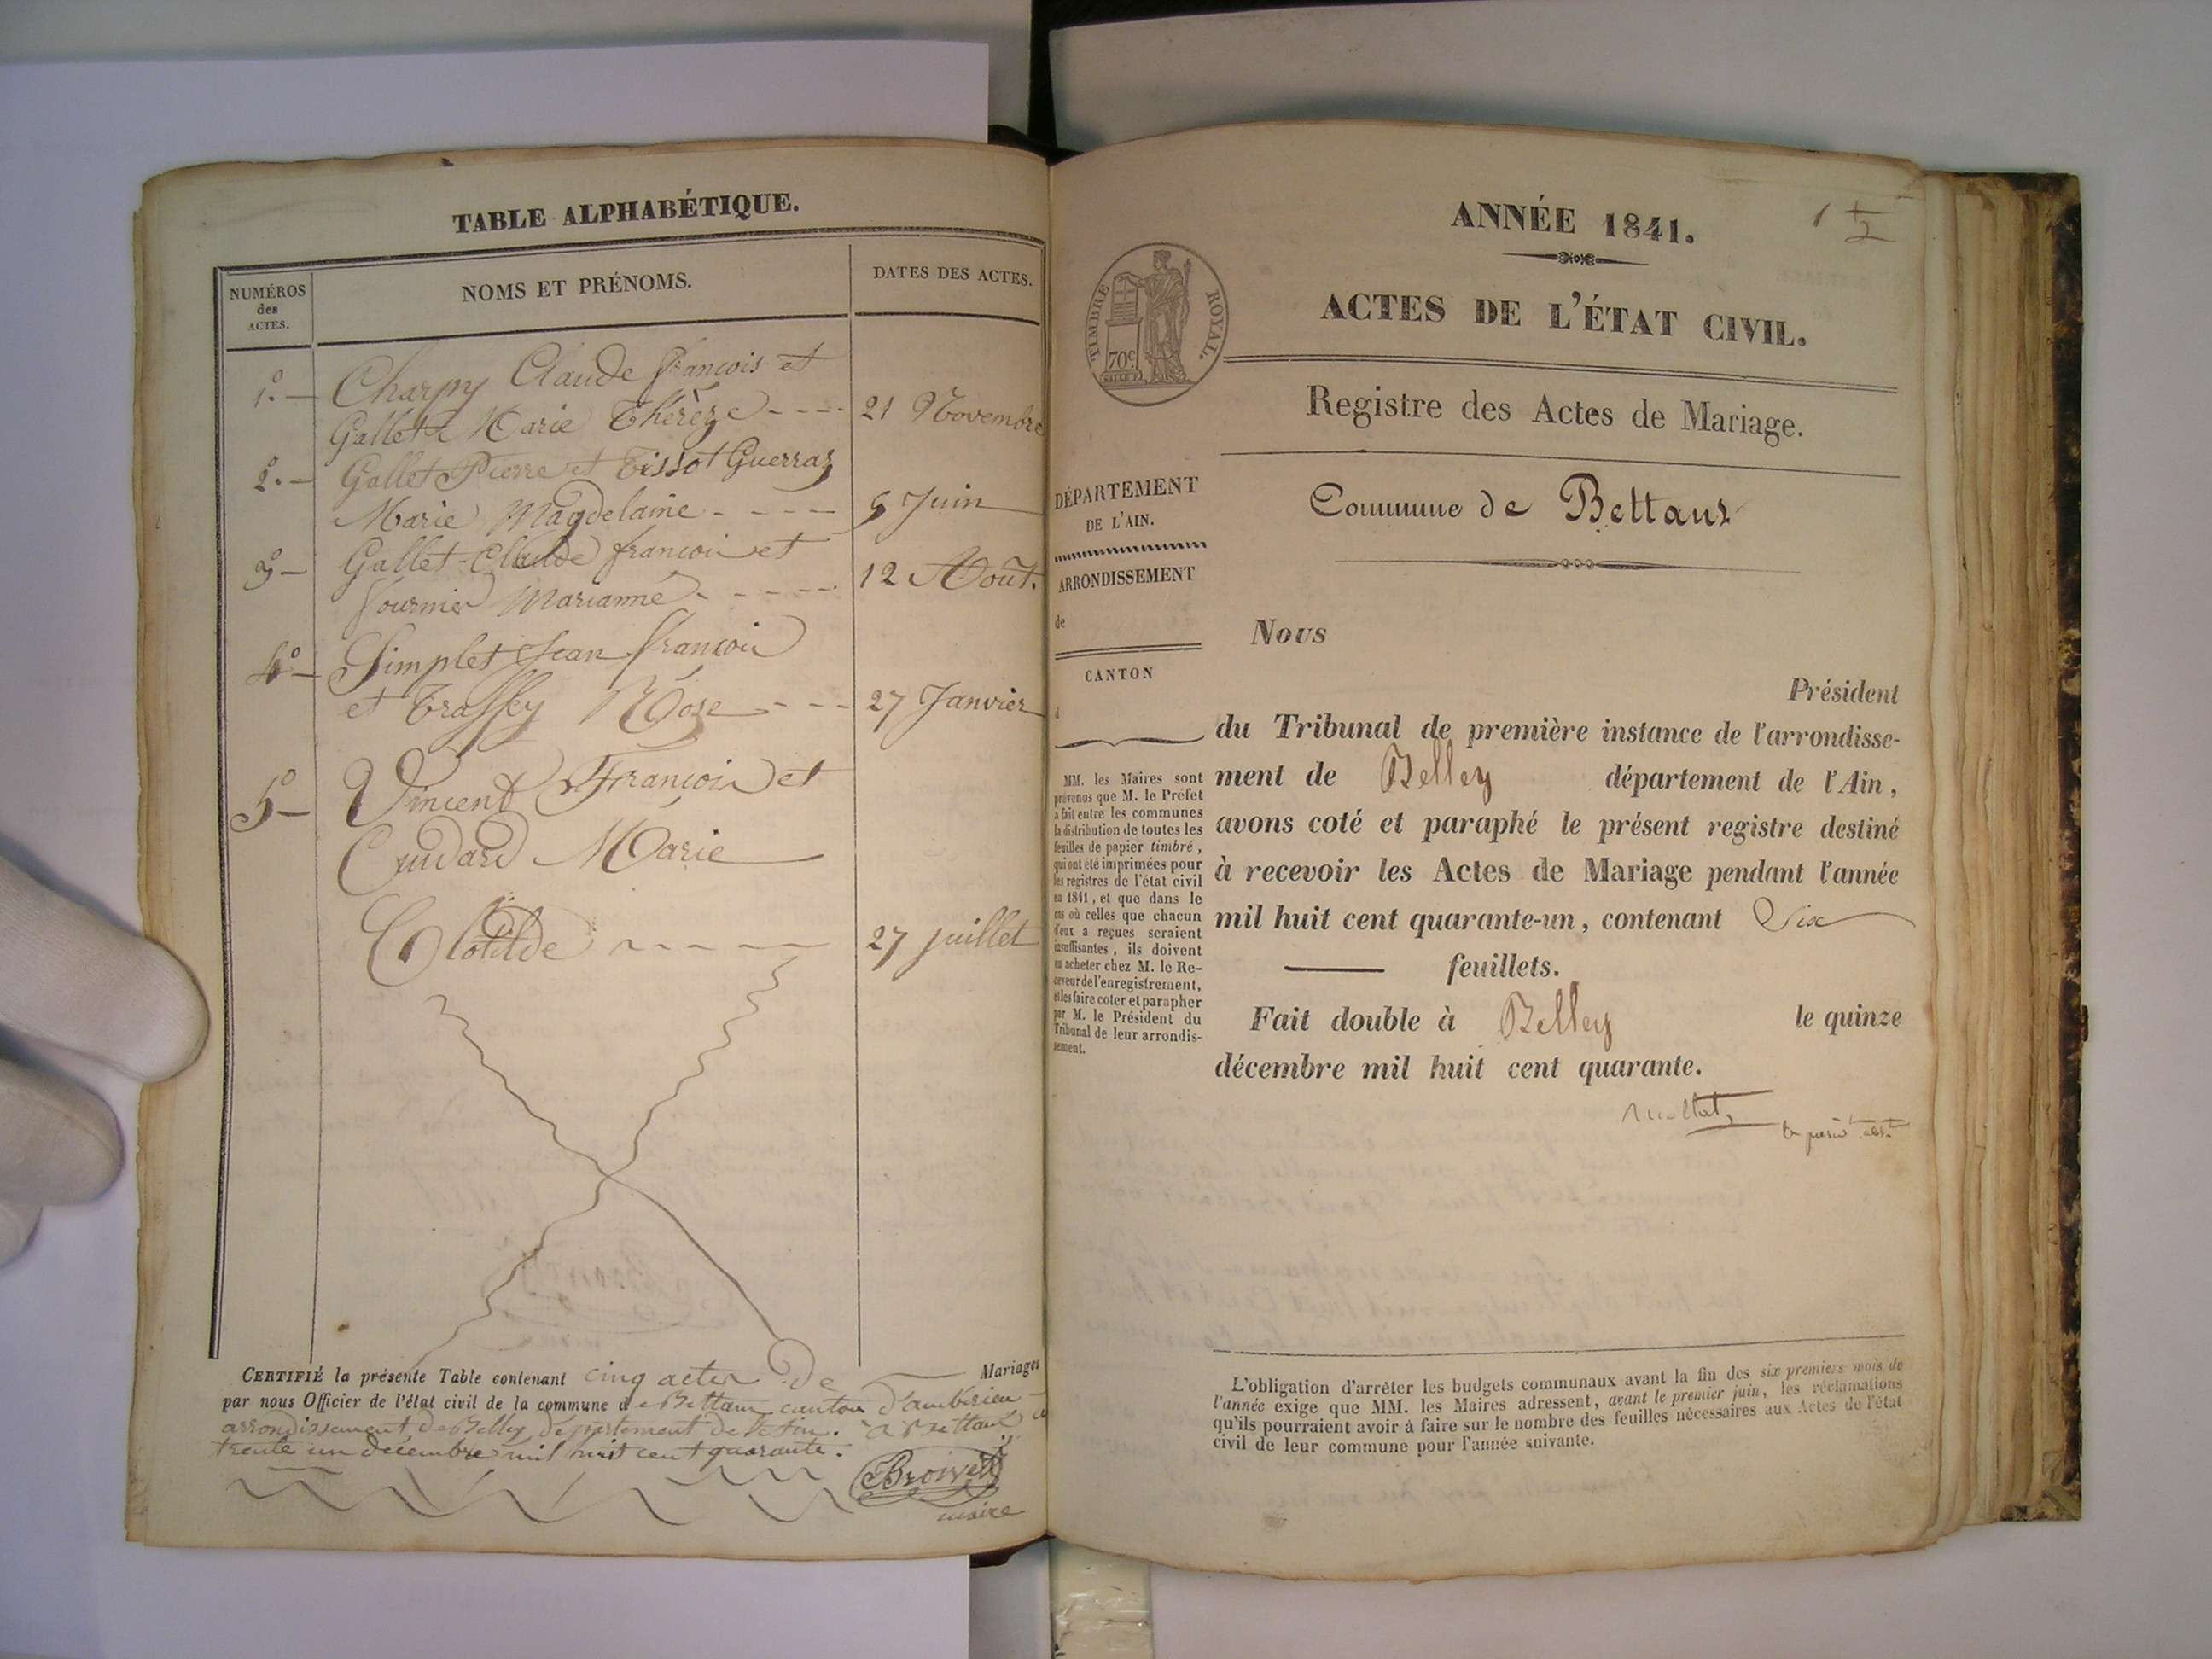 TABLE ALPHABÉTIQUE.
NUMÉROS
des
ACTES.
NOMS ET PRÉNOMS.
DATES DES ACTES.
1.° — Charpy Claude françois et
Gallet Marie Thérèze - - - - 21 Novembre
2.° — Gallet Pierre et Tissot Guerraz
Marie Magdelaine - - - - Juin
3° — Gallet Claude françois et
fournier Marianne - - - - - 12 Aout.
4° — Simplet Jean françois
et Roze - - - 27 Janvier
5° — Vincent François et
Marie
Clotilde - - - - - 27 juillet
CERTIFIÉ la présente Table contenant cinq actes de Mariages
par nous Officier de l'état civil de la commune de Bettans canton d'ambérieu
arrondissement de Belley département de l'ain. à Bettans
trente un décembre mil huit cent quarante.
maire
1
ANNÉE 1841.
ACTES DE L'ÉTAT CIVIL.
TIMBRE ROYAL.
70c
Registre des Actes de Mariage.
Commune de Bettans
DÉPARTEMENT
DE L'AIN.
ARRONDISSEMENT
de
CANTON
MM. les Maires sont
prévenus que M. le Préfet
a fait entre les communes
la distribution de toutes les
feuilles de papier timbré,
qui ont été imprimées pour
les registres de l'état civil
en 1841, et que dans le
cas où celles que chacun
d'eux a reçues seraient
insuffisantes, ils doivent
en acheter chez M. le Re-
ceveur de l'enregistrement,
et les faire coter et parapher
par M. le Président du
Tribunal de leur arrondis-
sement.
Nous
Président
du Tribunal de première instance de l'arrondisse-
ment de Belley département de l'Ain,
avons coté et paraphé le présent registre destiné
à recevoir les Actes de Mariage pendant l'année
mil huit cent quarante-un, contenant Six
feuillets.
Fait double à Belley le quinze
décembre mil huit cent quarante.
L'obligation d'arrêter les budgets communaux avant la fin des six premiers mois de
l'année exige que MM. les Maires adressent, avant le premier juin, les réclamations
qu'ils pourraient avoir à faire sur le nombre des feuilles nécessaires aux Actes de l'état
civil de leur commune pour l'année suivante.